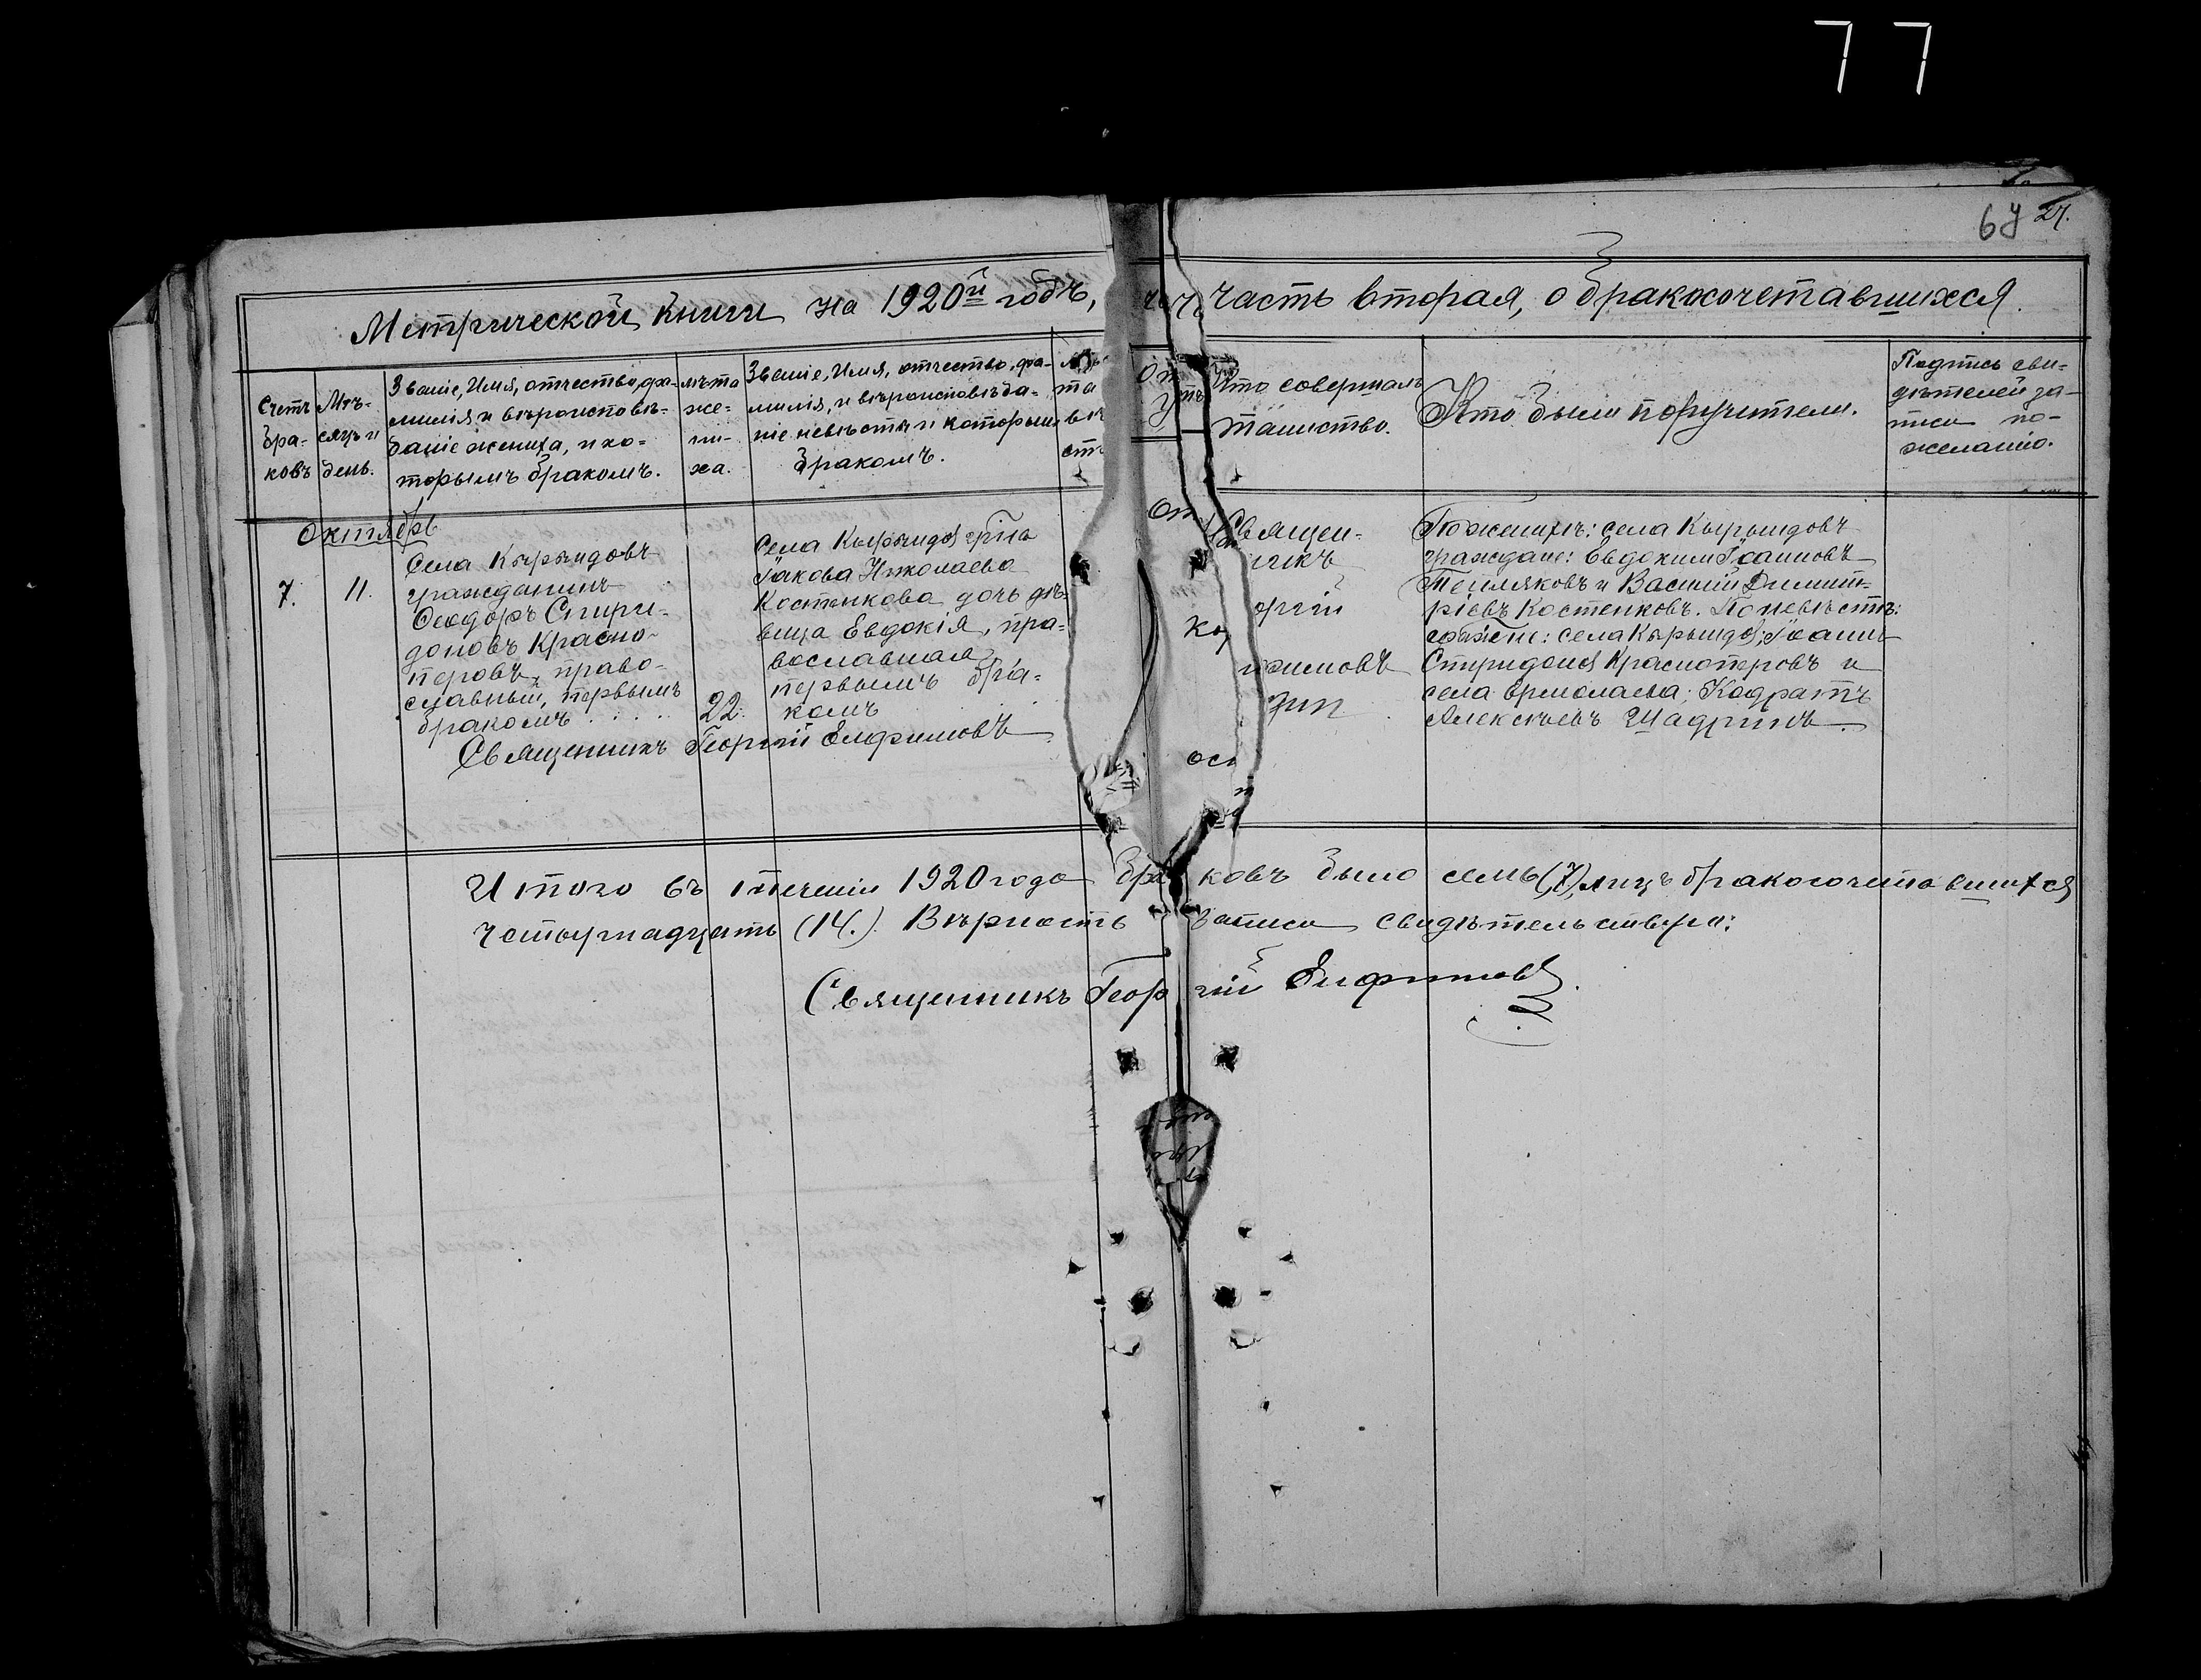 77
6у 27.
Метрической книги на 1920й годъ, часть вторая, о бракосочетавшихся.
Счетъ бра-ковъ
Мѣ-сяцъ и день.
Званіе, Имя, отчество, фа-
милія и вѣроисповѣ-
даніе жениха, и ко-
торымъ бракомъ.
лѣта
же-
ни-
ха.
Званіе, Имя, отчество, фа-
милія, и вѣроисповѣда-
ніе невѣсты и которым
бракомъ.
Кто совершалъ
таинство.
Кто были поручители.
Подпись сви-
дѣтелей за-
писи по-
желанію.
Октябрь
7. 11.
Села Кырындовъ
гражданинъ
Ѳеодоръ Спири-
доновъ Красно-
перовъ, право-
славный, первымъ
бракомъ
22.
Села Кырындов гр на
Іакова Николаева
Костенкова дочь дѣ-
вица Евдокія, пра-
вославная
первымъ бра-
комъ
Священникъ Георгій Елфимовъ
Священ-
никъ
оргій
фимовъ
По женихѣ: села Кырындовъ
граждане: Евдокимъ Іоанновъ
Тепляковъ и Василій Димит-
ріевъ Костенковъ. По невѣстѣ:
граждане: села Кырындов; Іоаннъ
Спиридонов Красноперовъ и
села Ермолаева; Кодратъ
Алексѣевъ Шадринъ.
Итого въ теченіи 1920 года браковъ было семь (7), лицъ бракосочетавшихся
четырнадцать (14.). Вѣрность записи свидѣтельствую:
Священникъ Георгій Елфимовъ.